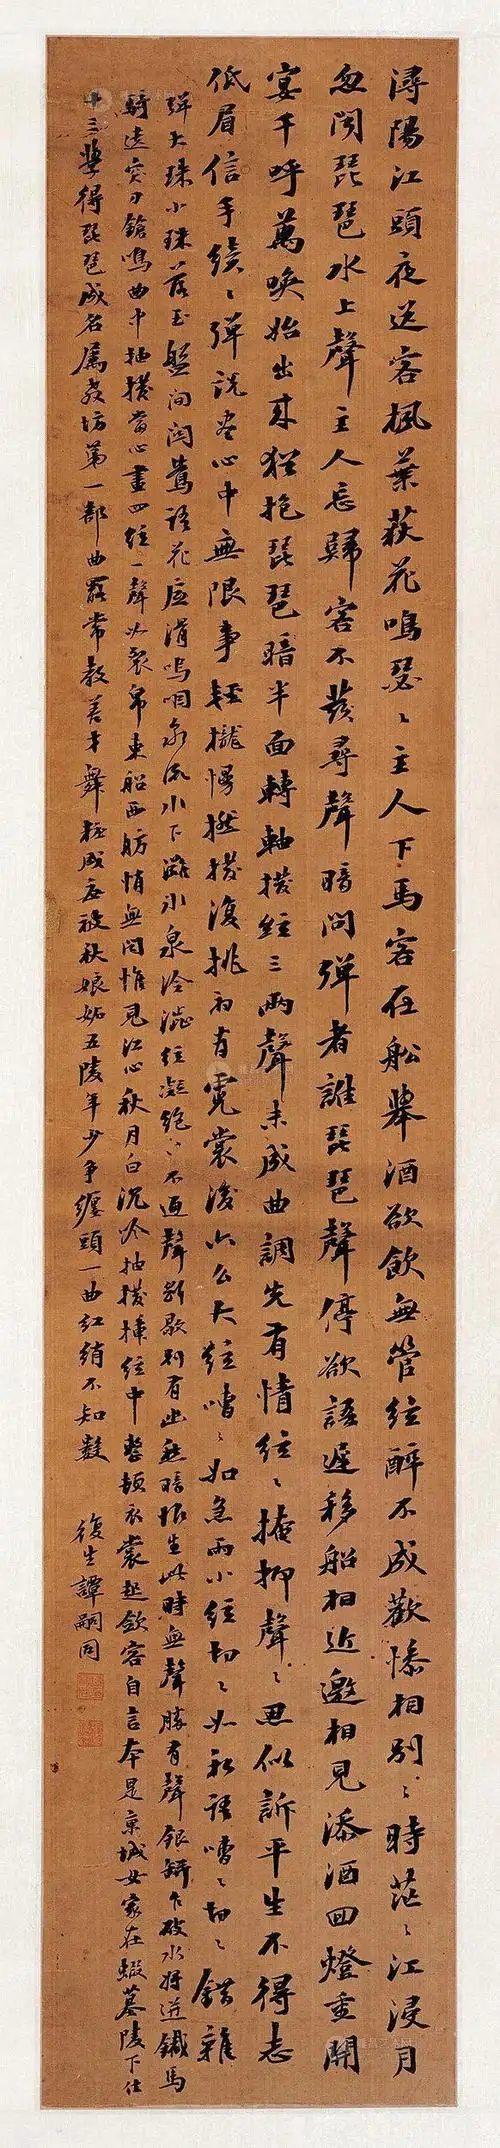 潯陽江頭夜送客楓葉荻花鳴瑟〻主人下馬客在船舉酒欲飲無管絃醉不成歡慘相別〻時茫〻江浸月
忽聞琵琶水上聲主人忘歸客不發尋聲暗問彈者誰琵琶聲停欲語遲移船相近邀相見添酒回燈重開
宴千呼萬喚始出來猶抱琵琶暗半面轉軸撥絃三兩聲未成曲調先有情絃〻掩抑聲〻思似訴平生不得志
低眉信手續〻彈說盡心中無限事輕攏慢撚撥復挑初有霓裳後六么大絃嘈〻如急雨小絃切〻如私語嘈〻切〻錯雜
彈大珠小珠落玉盤間關鶯語花底滑嗚咽泉流水下灘水泉冷澁絃凝絕〻不通聲漸歇別有幽愁暗恨生此時無聲勝有聲銀缾乍破水將迸鐵馬
騎遠突刀鎗鳴曲中抽撥當心畫四絃一聲如裂帛東船西舫悄無聞惟見江心秋月白沉吟抽撥插絃中整頓衣裳起斂容自言本是京城女家在蝦蟇陵下住
十三學得琵琶成名屬教坊第一部曲罷常教善才舞粧成每被秋娘妬五陵年少爭纏頭一曲紅綃不知數
復生譚嗣同